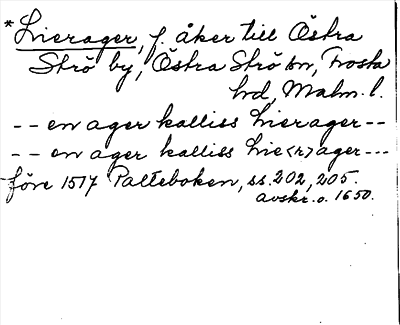 *Lierager, f. åker till Östra
Strö by, Östra Strö sn, Frosta
hd, Malm. l.
-- en ager kalliss Lierager--
-- en ager kalliss Lie<r>ager---
före 1517 Palteboken, ss. 202, 205.
avskr. o. 1650.